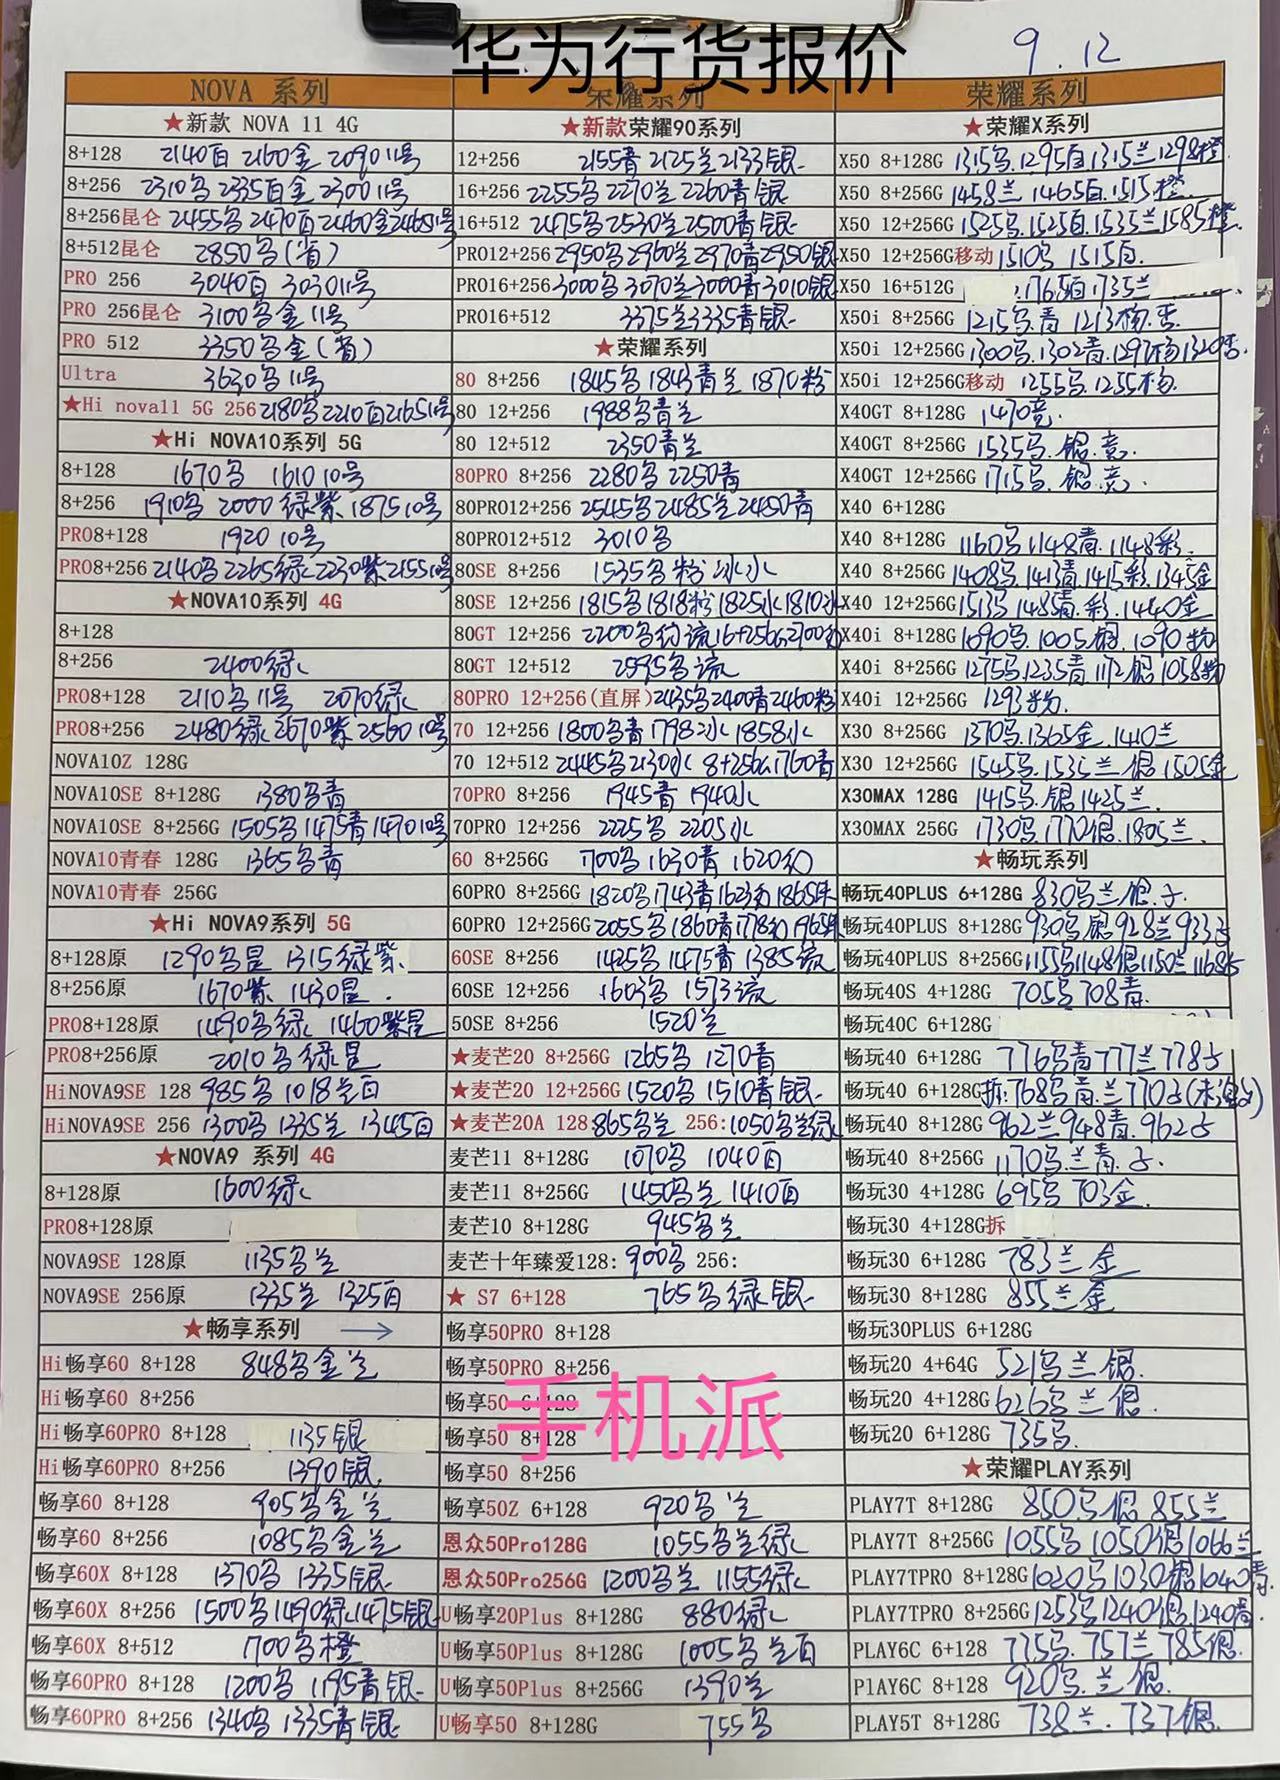 华为行货报价
9.12
NOVA 系列
★新款 NOVA 11 4G
8+128 2140白 2160金 2090 11号
8+256 2310乌 2335白金 2300 11号
8+256昆仑 2455乌 2470白 2460金 2465 11号
8+512昆仑 2850乌(省)
PRO 256 3040白 3030 11号
PRO 256昆仑 3100乌金 11号
PRO 512 3350乌金(省)
Ultra 3630乌 11号
★Hi nova11 5G 256 2180乌 2210白 2165 11号
★Hi NOVA10系列 5G
8+128 1670乌 1610 10号
8+256 1910乌 2000绿紫 1875 10号
PRO8+128 1920 10号
PRO8+256 2140乌 2265绿 2230紫 2155 10号
★NOVA10系列 4G
8+128
8+256 2400绿
PRO8+128 2110乌 11号 2070绿
PRO8+256 2480绿 2670紫 2560 10号
NOVA10Z 128G
NOVA10SE 8+128G 1380乌青
NOVA10SE 8+256G 1505乌 1475青 1470 10号
NOVA10青春 128G 1365乌青
NOVA10青春 256G
★Hi NOVA9系列 5G
8+128原 1290乌星 1315绿紫
8+256原 1670紫 1430星.
PRO8+128原 1490乌绿 1460紫星
PRO8+256原 2010乌绿星
HiNOVA9SE 128 985乌 1018兰白
HiNOVA9SE 256 1300乌 1335兰 1345白
★NOVA9 系列 4G
8+128原 1600绿
PRO8+128原
NOVA9SE 128原 1135乌兰
NOVA9SE 256原 1335兰 1325白
★畅享系列 →
Hi畅享60 8+128 848乌金兰
Hi畅享60 8+256
Hi畅享60PRO 8+128 1135银
Hi畅享60PRO 8+256 1390银.
畅享60 8+128 905乌金兰
畅享60 8+256 1085乌金兰
畅享60X 8+128 1370乌 1335银
畅享60X 8+256 1500乌 1490绿 1475银
畅享60X 8+512 1700乌橙
畅享60PRO 8+128 1200乌 1195青银
畅享60PRO 8+256 1340乌 1335青银
荣耀系列
★新款荣耀90系列
12+256 2155青 2125兰 2133银
16+256 2255乌 2270兰 2260青银
16+512 2475乌 2530兰 2500青银
PRO12+256 2950乌 2960兰 2970青 2950银
PRO16+256 3000乌 3070兰 3000青 3010银
PRO16+512 3375兰 3335青银
★荣耀系列
80 8+256 1845乌 1843青兰 1870粉
80 12+256 1988乌青兰
80 12+512 2350青兰
80PRO 8+256 2280乌 2250青
80PRO12+256 2545乌 2485兰 2480青
80PRO12+512 3010乌
80SE 8+256 1535乌粉冰水
80SE 12+256 1815乌 1818粉 1825水 1810冰
80GT 12+256 2200乌幻流 16+256G 2700幻
80GT 12+512 2595乌流
80PRO 12+256(直屏) 2435乌 2400青 2460粉
70 12+256 1800乌青 1798冰 1858水
70 12+512 2445乌 2130水 8+256G 1760青
70PRO 8+256 1945青 1940水
70PRO 12+256 2225乌 2205水
60 8+256G 1700乌 1630青 1620幻
60PRO 8+256G 1820乌 1743青 1623幻 1865朱
60PRO 12+256G 2055乌 1860青 1778幻 1965朱
60SE 8+256 1425乌 1475青 1385流
60SE 12+256 1603乌 1573流
50SE 8+256 1520兰
★麦芒20 8+256G 1265乌 1270青
★麦芒20 12+256G 1520乌 1510青银
★麦芒20A 128 865乌兰 256:1050乌兰绿
麦芒11 8+128G 1070乌 1040白
麦芒11 8+256G 1450乌兰 1410白
麦芒10 8+128G 945乌兰
麦芒十年臻爱128: 900乌 256:
★ S7 6+128 765乌绿银
畅享50PRO 8+128
畅享50PRO 8+256
畅享50 6+128
手机派
畅享50 8+128
畅享50 8+256
畅享50Z 6+128 920乌兰
恩众50Pro128G 1055乌兰绿
恩众50Pro256G 1200乌兰 1155绿
U畅享20Plus 8+128G 880绿
U畅享50Plus 8+128G 1005乌兰白
U畅享50Plus 8+256G 1390兰
U畅享50 8+128G 755乌
荣耀系列
★荣耀X系列
X50 8+128G 1315乌.1295白 1315兰 1298橙
X50 8+256G 1458兰 1465白.1515橙
X50 12+256G 1525乌.1525白.1535兰 1585橙
X50 12+256G移动 1510乌 1515白.
X50 16+512G .1765白 1735兰
X50i 8+256G 1215乌.青 1213杨.杏
X50i 12+256G 1300乌.1302青.1297杨 1320杏.
X50i 12+256G移动 1255乌.1255杨.
X40GT 8+128G 1470竞.
X40GT 8+256G 1535乌.银.竞.
X40GT 12+256G 1715乌.银.竞.
X40 6+128G
X40 8+128G 1160乌.1148青.1148彩.
X40 8+256G 1408乌.1413青.1415彩.1345金
X40 12+256G 1513乌 1485青.彩.1440金
X40i 8+128G 1090乌.1005银.1090粉
X40i 8+256G 1275乌.1235青 1172银 1058粉
X40i 12+256G 1293粉.
X30 8+256G 1370乌.1365金.1410兰
X30 12+256G 1545乌.1535兰 银 1505金
X30MAX 128G 1415乌.银 1425兰.
X30MAX 256G 1730乌.1770银.1805兰.
★畅玩系列
畅玩40PLUS 6+128G 830乌兰银.子.
畅玩40PLUS 8+128G 930乌银 928兰 933子
畅玩40PLUS 8+256G 1155乌 1148银 1150兰 1168子
畅玩40S 4+128G 705乌 708青.
畅玩40C 6+128G
畅玩40 6+128G 776乌青 777兰 778子
畅玩40 6+128G拆:768乌青.兰 770子
畅玩40 8+128G 962兰 948青.962子
畅玩40 8+256G 1170乌.兰青.子.
畅玩30 4+128G 695乌 703金.
畅玩30 4+128G拆
畅玩30 6+128G 783兰金
畅玩30 8+128G 855兰金
畅玩30PLUS 6+128G
畅玩20 4+64G 521乌兰银.
畅玩20 4+128G 626乌兰银.
畅玩20 6+128G 735乌.
★荣耀PLAY系列
PLAY7T 8+128G 850乌.银 855兰
PLAY7T 8+256G 1055乌 1050银 1066兰
PLAY7TPRO 8+128G 1020乌 1030银 1040青.
PLAY7TPRO 8+256G 1253乌 1240银.1240青.
PLAY6C 6+128 775乌.757兰 785银.
PlAY6C 8+128 920乌.兰银.
PLAY5T 8+128G 738兰.737银.